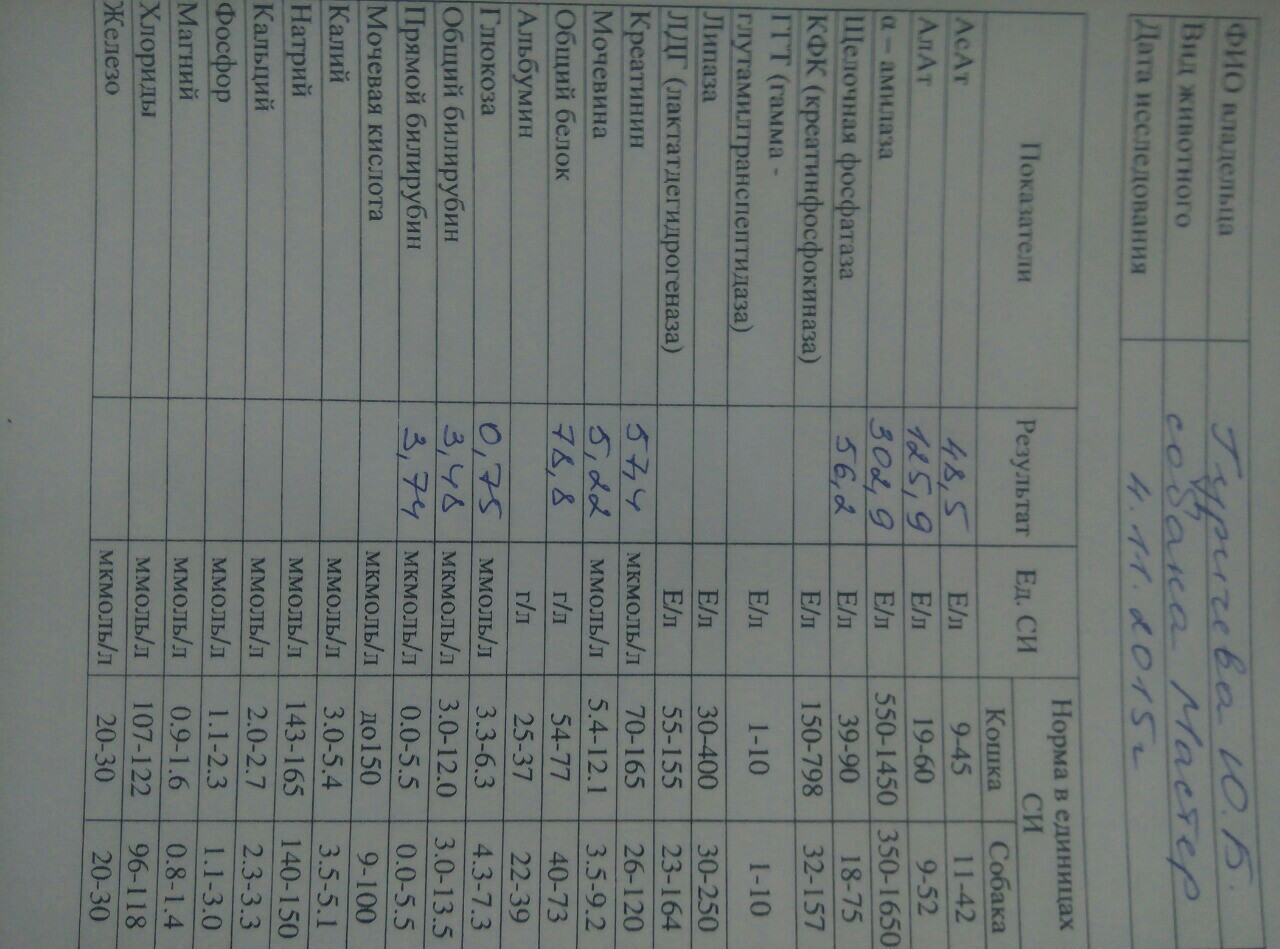 ФИО владельца Туричева Ю.В.
Вид животного собака Мастер
Дата исследования 4.11.2015г
Показатели Результат Ед. СИ Норма в единицах СИ
Кошка Собака
АсАт 48,5 Е/л 9-45 11-42
АлАт 125,9 Е/л 19-60 9-52
α – амилаза 302,9 Е/л 550-1450 350-1650
Щелочная фосфатаза 56,2 Е/л 39-90 18-75
КФК (креатинфосфокиназа) Е/л 150-798 32-157
ГГТ (гамма -
глутамилтранспептидаза) Е/л 1-10 1-10
Липаза Е/л 30-400 30-250
ЛДГ (лактатдегидрогеназа) Е/л 55-155 23-164
Креатинин 57,4 мкмоль/л 70-165 26-120
Мочевина 5,22 ммоль/л 5.4-12.1 3.5-9.2
Общий белок 78,8 г/л 54-77 40-73
Альбумин г/л 25-37 22-39
Глюкоза 0,75 ммоль/л 3.3-6.3 4.3-7.3
Общий билирубин 3,48 мкмоль/л 3.0-12.0 3.0-13.5
Прямой билирубин 3,74 мкмоль/л 0.0-5.5 0.0-5.5
Мочевая кислота мкмоль/л до150 9-100
Калий ммоль/л 3.0-5.4 3.5-5.1
Натрий ммоль/л 143-165 140-150
Кальций ммоль/л 2.0-2.7 2.3-3.3
Фосфор ммоль/л 1.1-2.3 1.1-3.0
Магний ммоль/л 0.9-1.6 0.8-1.4
Хлориды ммоль/л 107-122 96-118
Железо мкмоль/л 20-30 20-30